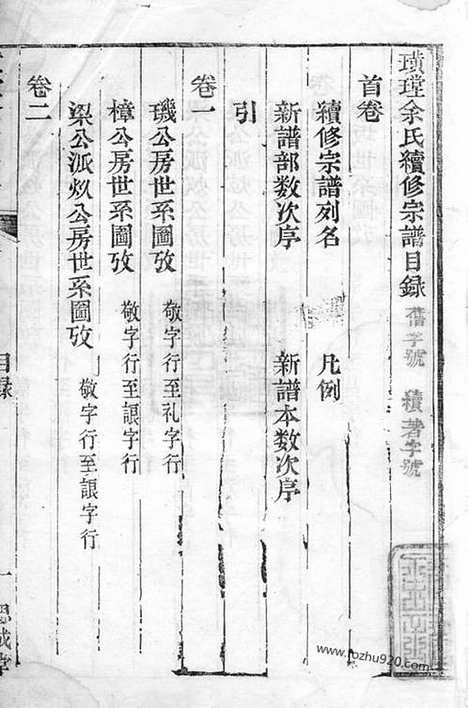 璜瑝余氏續修宗譜目録 舊字號 續著字號
首卷
續修宗譜列名 凡例
新譜部数次序 新譜本数次序
引
卷一
璣公房世系圖攷 敬字行至礼字行
樟公房世系圖攷 敬字行至詪字行
梁公派㷌公房世系圖攷 敬字行至詪字行
卷二
目録 一
www.fozhu920.com